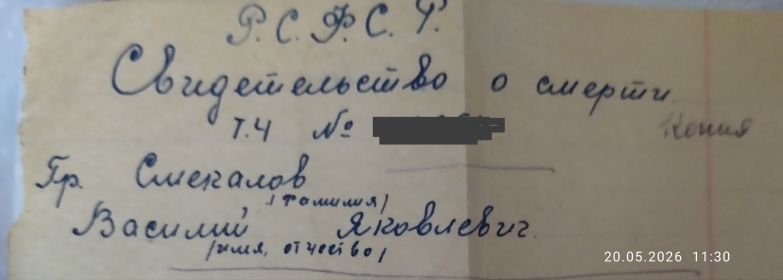 Р.С.Ф.С.Р.
Свидетельство о смерти.
Т.Ч №
Копия
Гр. Смекалов
/фамилия/
Василий Яковлевич.
/имя, отчество/
20.05.2026 11:30